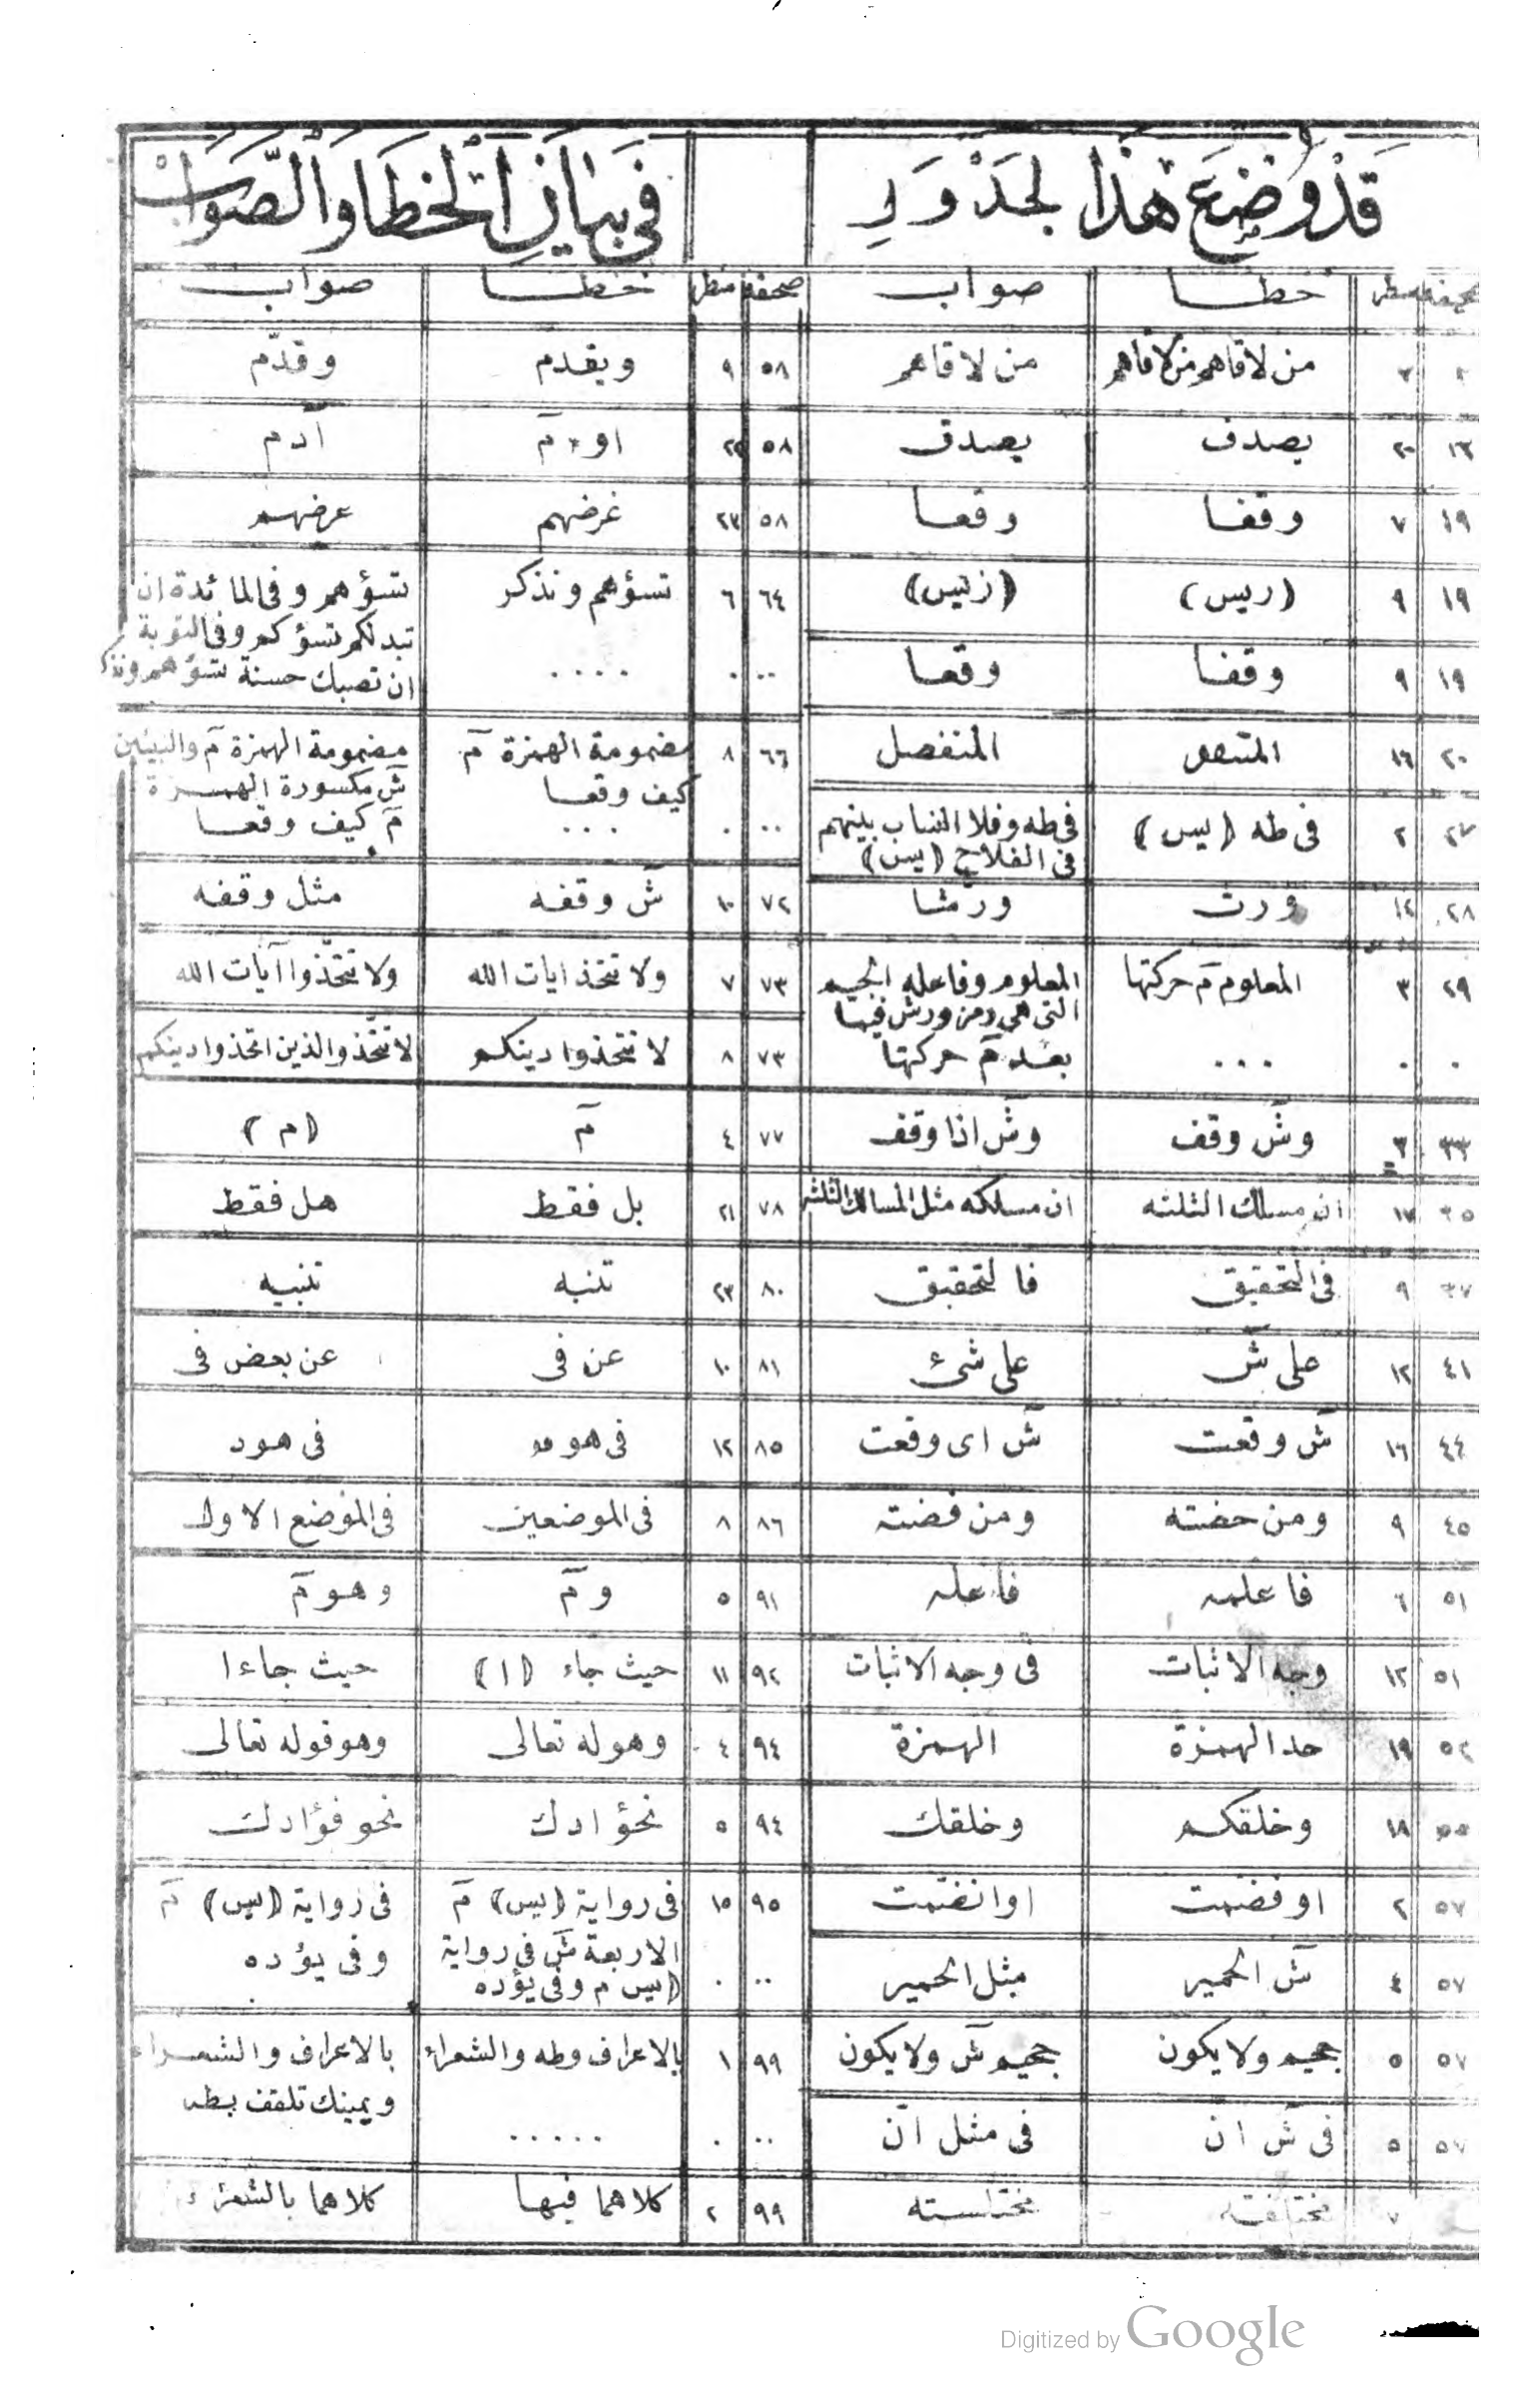 قد وضع هذا لجدول في بيان الخطا والصواب
صحيفه سطر خطا صواب
٣ من لاقاهم من لاقاهم من لاقاهم
١٣ ٢٠ يصدف يصدق
١٩ ٧ وقفا وقعا
١٩ ٩ (ريس) (زئيس)
١٩ ٩ وقفا وقعا
٢٠ ١٦ المنفصل
٢٧ ٢ فى طه (يس) فى طه وفلا انساب بينهم
فى الفلاح (يس)
٢٨ ١٢ ورث ورشا
٢٩ ٣ المعلوم مٓ حركتها المعلوم وفاعله الجيم
التى هى رمز ورش فيها
٠ ٠ ... بعد مٓ حركتها
٣٣ ٣ وشٓ وقف وشٓ اذا وقف
٣٥ ١٧ ان مسلك الثلثه ان مسلكه مثل المسالك الثلثه
٣٧ ٩ فى التحقيق فا لتحقيق
٤١ ١٢ على شٓ على شئ
٤٤ ١٦ شٓ وقعت شٓ اى وقعت
٤٥ ٩ ومن حضته ومن فضته
٥١ ٦ فاعلمه فاعله
٥١ ١٢ وجه الاثبات فى وجه الاثبات
٥٢ ١٩ حد الهمزة الهمزة
٥٥ ١٨ وخلقكم وخلقك
٥٧ ٢ او فضمت او انضمت
٥٧ ٤ شٓ الحمير مثل الحمير
٥٧ ٥ جحيم ولا يكون جحيم شٓ ولا يكون
٥٧ ٥ فى شٓ انّ فى مثل انّ
٧ مختلفته مختلسته
صحفه سطر خطا صواب
٥٨ ٩ ويقدم وقدّم
٥٨ ٢٢ اوءمٓ آدم
٥٨ ٢٣ غرضهم عرضهم
٦٤ ٦ تسؤهم ونذكر تسؤهم وفى المائدة ان
تبد لكم تسؤكم وفى التوبة
.. . ..... ان تصبك حسنة تسؤهم ونذكر
٦٦ ٨ مضمومة الهمزة مٓ مضمومة الهمزة مٓ والنبيئين
كيف وقعا شٓ مكسورة الهمزة
.. . ... مٓ كيف وقعا
٧٢ ١٠ شٓ وقفه مثل وقفه
٧٣ ٧ ولا تتخذ ايات الله ولا تتّخذوا آيات الله
٧٣ ٨ لا تتخذوا دينكم لا تتّخذوالذين اتخذوا دينكم
٧٧ ٤ مٓ (م)
٧٨ ٢١ بل فقط هل فقط
٨٠ ٢٣ تنبه تنبيه
٨١ ١٠ عن فى عن بعض فى
٨٥ ١٢ فى هو فى هود
٨٦ ٨ فى الموضعين فى الموضع الاول
٩١ ٥ ومٓ وهو مٓ
٩٢ ١١ حيث جاء (ا) حيث جاءا
٩٤ ٤ وهوله تعالى وهو قوله تعالى
٩٤ ٥ نحؤادك نحو فؤادك
٩٥ ١٥ فى رواية (يس) مٓ فى رواية (يس) مٓ
الاربعة شٓ فى رواية وفى يؤده
.. . (يس م وفى يؤده
٩٩ ١ بالاعراف وطه والشعراء بالاعراف والشعراء
ويمينك تلقف بطه
.. . .....
٩٩ ٢ كلاهما فيها كلاهما بالشعراء
Digitized by Google